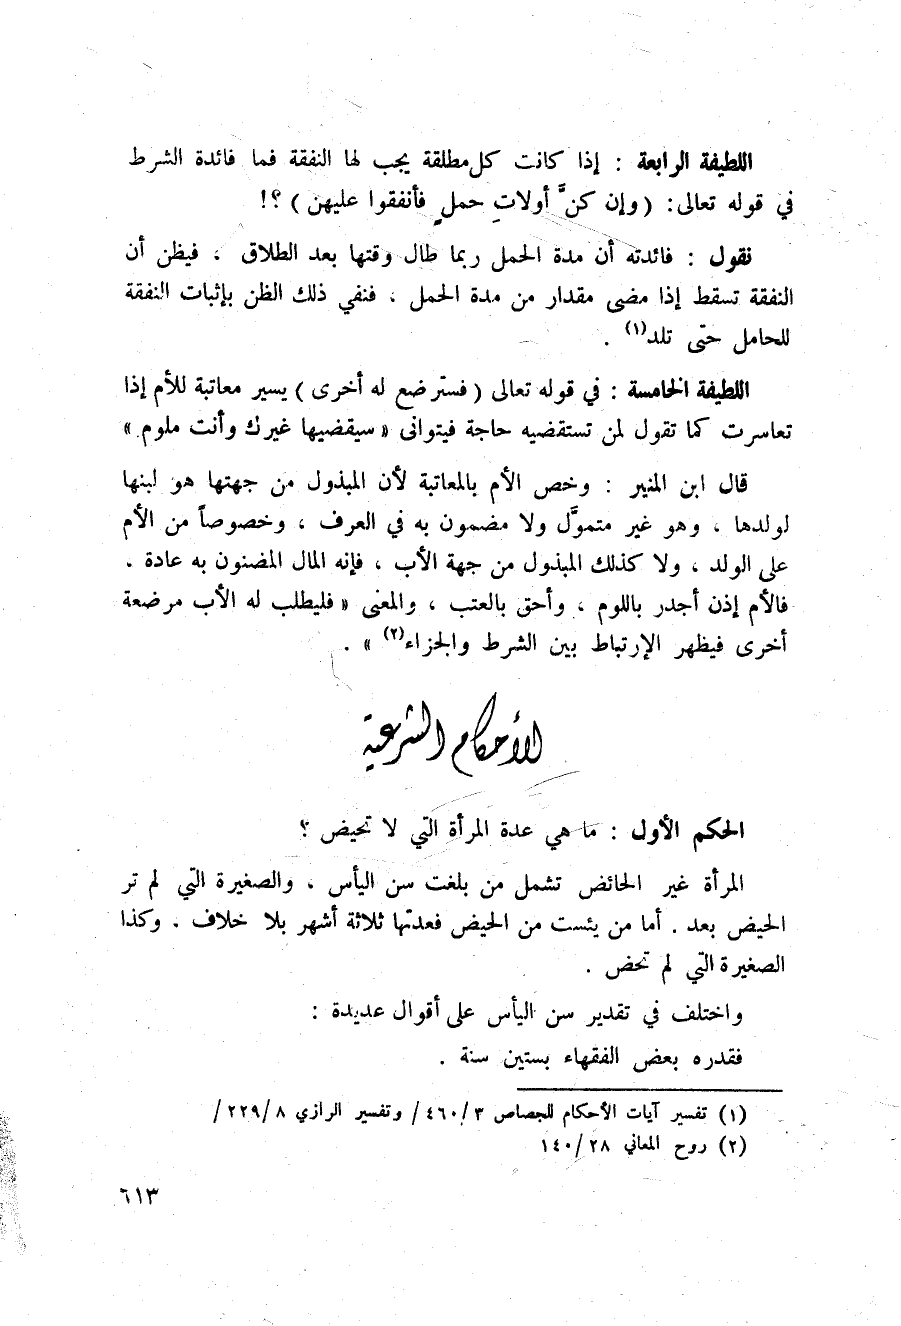 اللطيفة الرابعة : إذا كانت كل مطلقة يجب لها النفقة فما فائدة الشرط
في قوله تعالى: ( وإن كنَّ أولاتِ حملٍ فأنفقوا عليهن ) ؟!
نقول : فائدته أن مدة الحمل ربما طال وقتها بعد الطلاق ، فيظن أن
النفقة تسقط إذا مضى مقدار من مدة الحمل ، فنفي ذلك الظن بإثبات النفقة
للحامل حتى تلد(١) .
اللطيفة الخامسة : في قوله تعالى ( فسترضع له أخرى ) يسير معاتبة للأم إذا
تعاسرت كما تقول لمن تستقضيه حاجة فيتوانى « سيقضيها غيرك وأنت ملوم »
قال ابن المنير : وخص الأم بالمعاتبة لأن المبذول من جهتها هو لبنها
لولدها ، وهو غير متموَّل ولا مضمون به في العرف ، وخصوصاً من الأم
على الولد ، ولا كذلك المبذول من جهة الأب ، فإنه المال المضنون به عادة .
فالأم إذن أجدر باللوم ، وأحق بالعتب ، والمعنى « فليطلب له الأب مرضعة
أخرى فيظهر الإرتباط بين الشرط والجزاء(٢) » .
الأحكام الشرعية
الحكم الأول : ما هي عدة المرأة التي لا تحيض ؟
المرأة غير الحائض تشمل من بلغت سن اليأس ، والصغيرة التي لم تر
الحيض بعد . أما من يئست من الحيض فعدتها ثلاثة أشهر بلا خلاف . وكذا
الصغيرة التي لم تحض .
واختلف في تقدير سن اليأس على أقوال عديدة :
فقدره بعض الفقهاء بستين سنة .
(١) تفسير آيات الأحكام للجصاص ٣ /٤٦٠/ وتفسير الرازي ٨ /٢٢٩/
(٢) روح المعاني ٢٨ /١٤٠
٦١٣